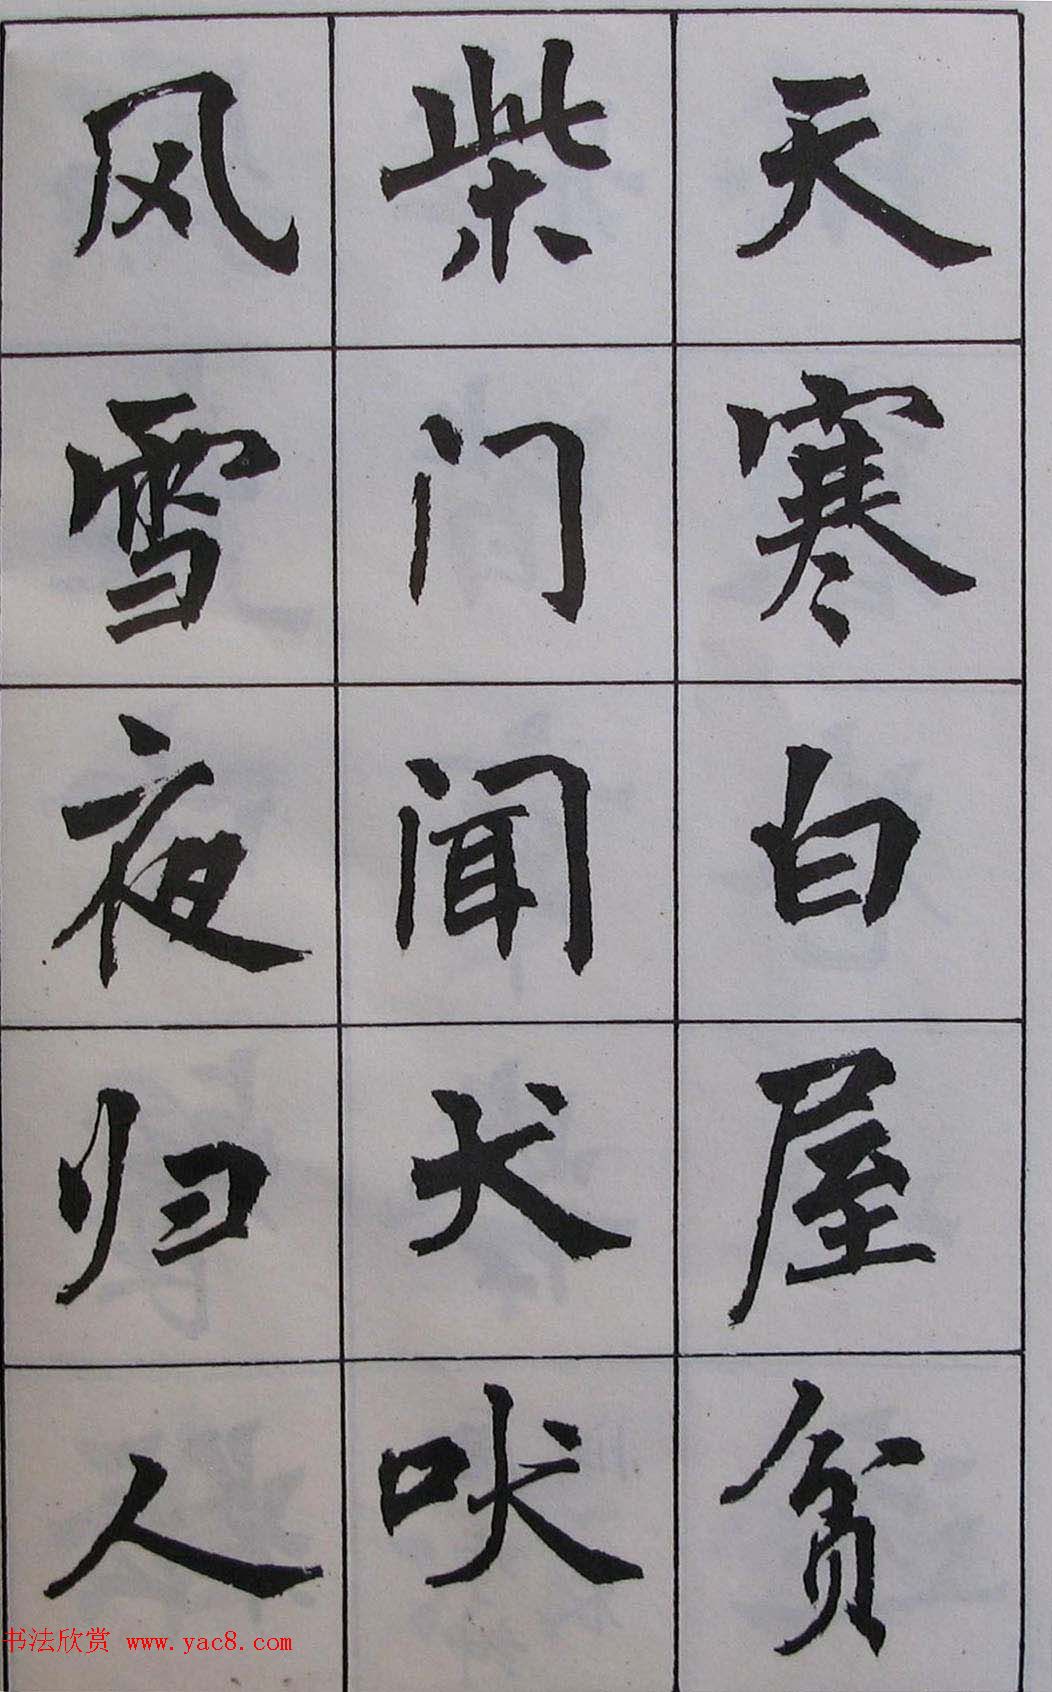 天寒白屋贫
柴门闻犬吠
风雪夜归人
书法欣赏 www.yac8.com